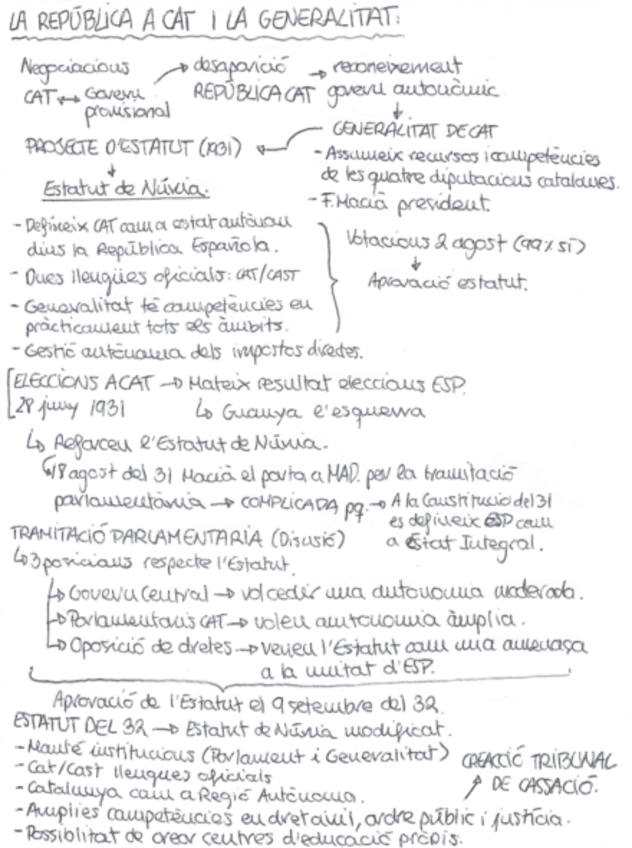 LA REPÚBLICA A CAT I LA GENERALITAT:
Negociacions → desaparició → reconeixement
CAT ↔ Govern provisional REPÚBLICA CAT govern autonòmic
↓
GENERALITAT DE CAT
PROJECTE D'ESTATUT (1931) ←
- Assumeix recursos i competències
de les quatre diputacions catalanes.
- F. Macià president.
↓
Estatut de Núria.
- Defineix CAT com a estat autònom
dins la República Española.
- Dues llengües oficials: CAT/CAST
- Generalitat té competències en
pràcticament tots els àmbits.
- Gestió autònoma dels impostos directes.
Votacions 2 agost (99% sí)
↓
Aprovació estatut.
ELECCIONS A CAT → Mateix resultat eleccions ESP.
28 juny 1931 ↳ Guanya l'esquerra
↳ Reforcen l'Estatut de Núria.
↳ 18 agost del 31 Macià el porta a MAD. per la tramitació
parlamentària → COMPLICADA pq. → A la Constitució del 31
es defineix ESP com
a Estat Integral.
TRAMITACIÓ PARLAMENTARIA (Disusió)
↳ 3 posicions respecte l'Estatut.
↳ Govern Central → vol cedir una autonomia moderada.
↳ Parlamentaris CAT → volen amtonomia àmplia.
↳ Oposició de dretes → veuen l'Estatut com una amenaça
a la unitat d'ESP.
Aprovació de l'Estatut el 9 setembre del 32.
ESTATUT DEL 32 → Estatut de Núria modificat.
- Manté institucions (Parlament i Generalitat)
- Cat/Cast llengues oficials
- Catalunya com a Regió Autònoma.
CREACCIÓ TRIBUNAL
↗ DE CASSACIÓ.
- Amplies competències en dret civil, ordre públic i justícia.
- Possiblitat de crear centres d'educació pròpis.